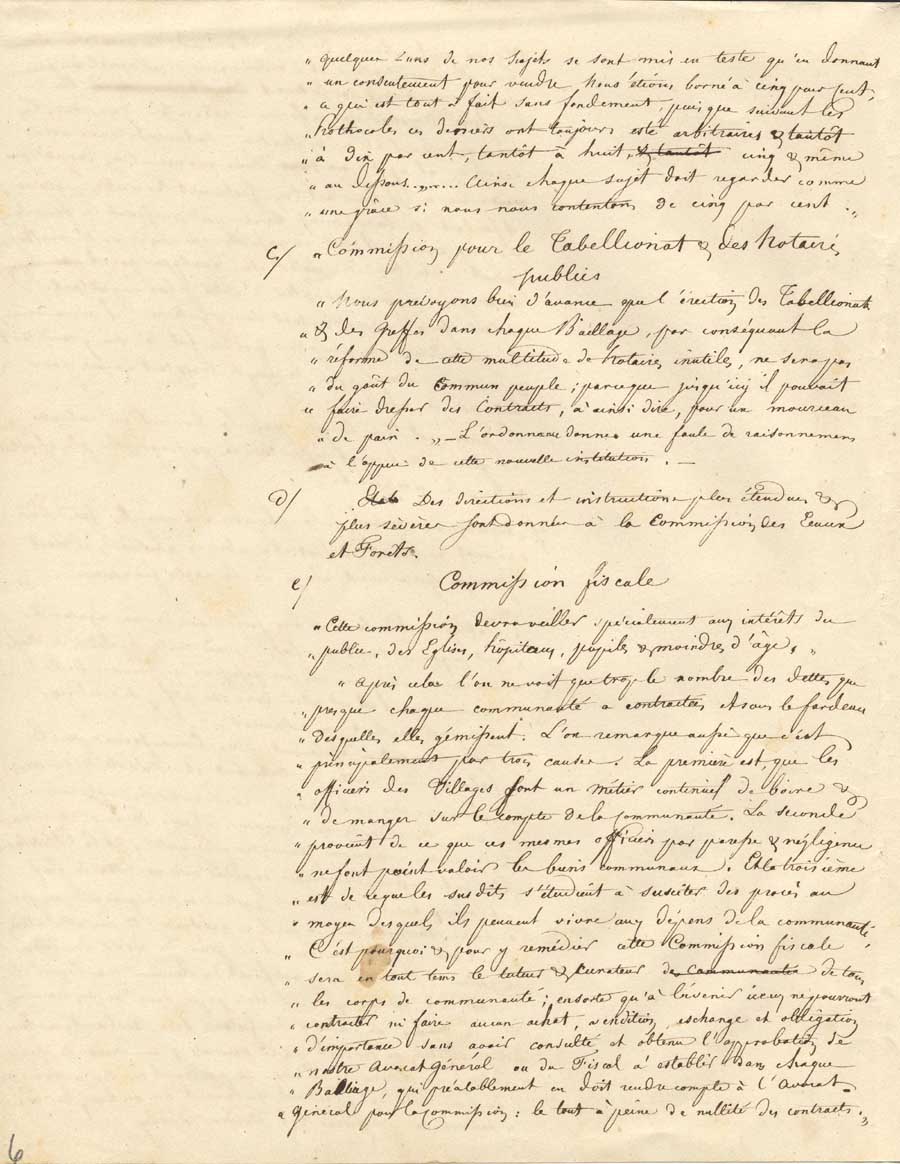 " quelques uns de nos sujets se sont mis en teste qu'en donnant
" un consentement pour vendre, Nous étions borné à cinq pour cent,
" ce qui est tout a fait sans fondement, puis que suivant les
" Prothocoles ces deniers ont toujours esté arbitraires & tantôt
" à dix par cent, tantôt à huit, & tantôt cinq & même
" au dessous ....... Ainsi chaque sujet doit regarder comme
" une grâce si nous nous contentons de cinq par cent. "
C/ " Commission pour le Tabellionat & des Notaires
publics
" Nous prévoyons bien d'avance que l'érection des Tabellionats
" & des Greffes dans chaque Bailliage, par conséquant la
" réforme de cette multitude de Notaires inutiles, ne sera pas
" du goût du Commun peuple ; parceque jusqu'icy il pouvait
" faire dresser des Contracts, à ainsi dire, pour un mourceau
" de pain. " – L'ordonnance donne une foule de raisonnemens
à l'appui de cette nouvelle institution. –
d/ Des directions et instructions plus étendues &
plus sévères sont donnée à la Commission des Eeaux
et Forêts.
e/ Commission fiscale
" Cette commission devra veiller spécialement aux intérêts du
" public, des Eglises, hôpiteaux, pupiles & moindres d'âge, "
" après cela l'on ne voit que trop le nombre des dettes que
" presque chaque communauté a contractées et sous le fardeau
" desquelles elles gémissent. L'on remarque aussi que c'est
" principalement par trois causes. La première est, que les
" officiers des Villages font un métier continuel de boire &
" de manger sur le compte de la communauté. La seconde
" provient de ce que ces mêmes officiers par paresse & négligence
" ne font point valoir les biens communaux. Et la troisième
" est de ce que les susdits s'étudient à susciter des procès au
" moyen desquels ils peuvent vivre aux dépens de la communauté.
" C'est pourquoi & pour y remédier cette Commission fiscale
" sera en tout tems le tuteur & Curateur de communautés de tous
" les corps de communauté ; ensorte qu'à l'avenir iceux ne pourront
" contracter ni faire aucun achat, vendition, eschange et obligation
" d'importance sans avoir consulté et obtenu l'approbation de
" nostre Avocat Général ou du Fiscal à establir dans chaque
" Bailliage, qui préalablement en doit rendre compte à l'Avocat
" Général pour la Commission : le tout à peine de nullité des contracts. "
6